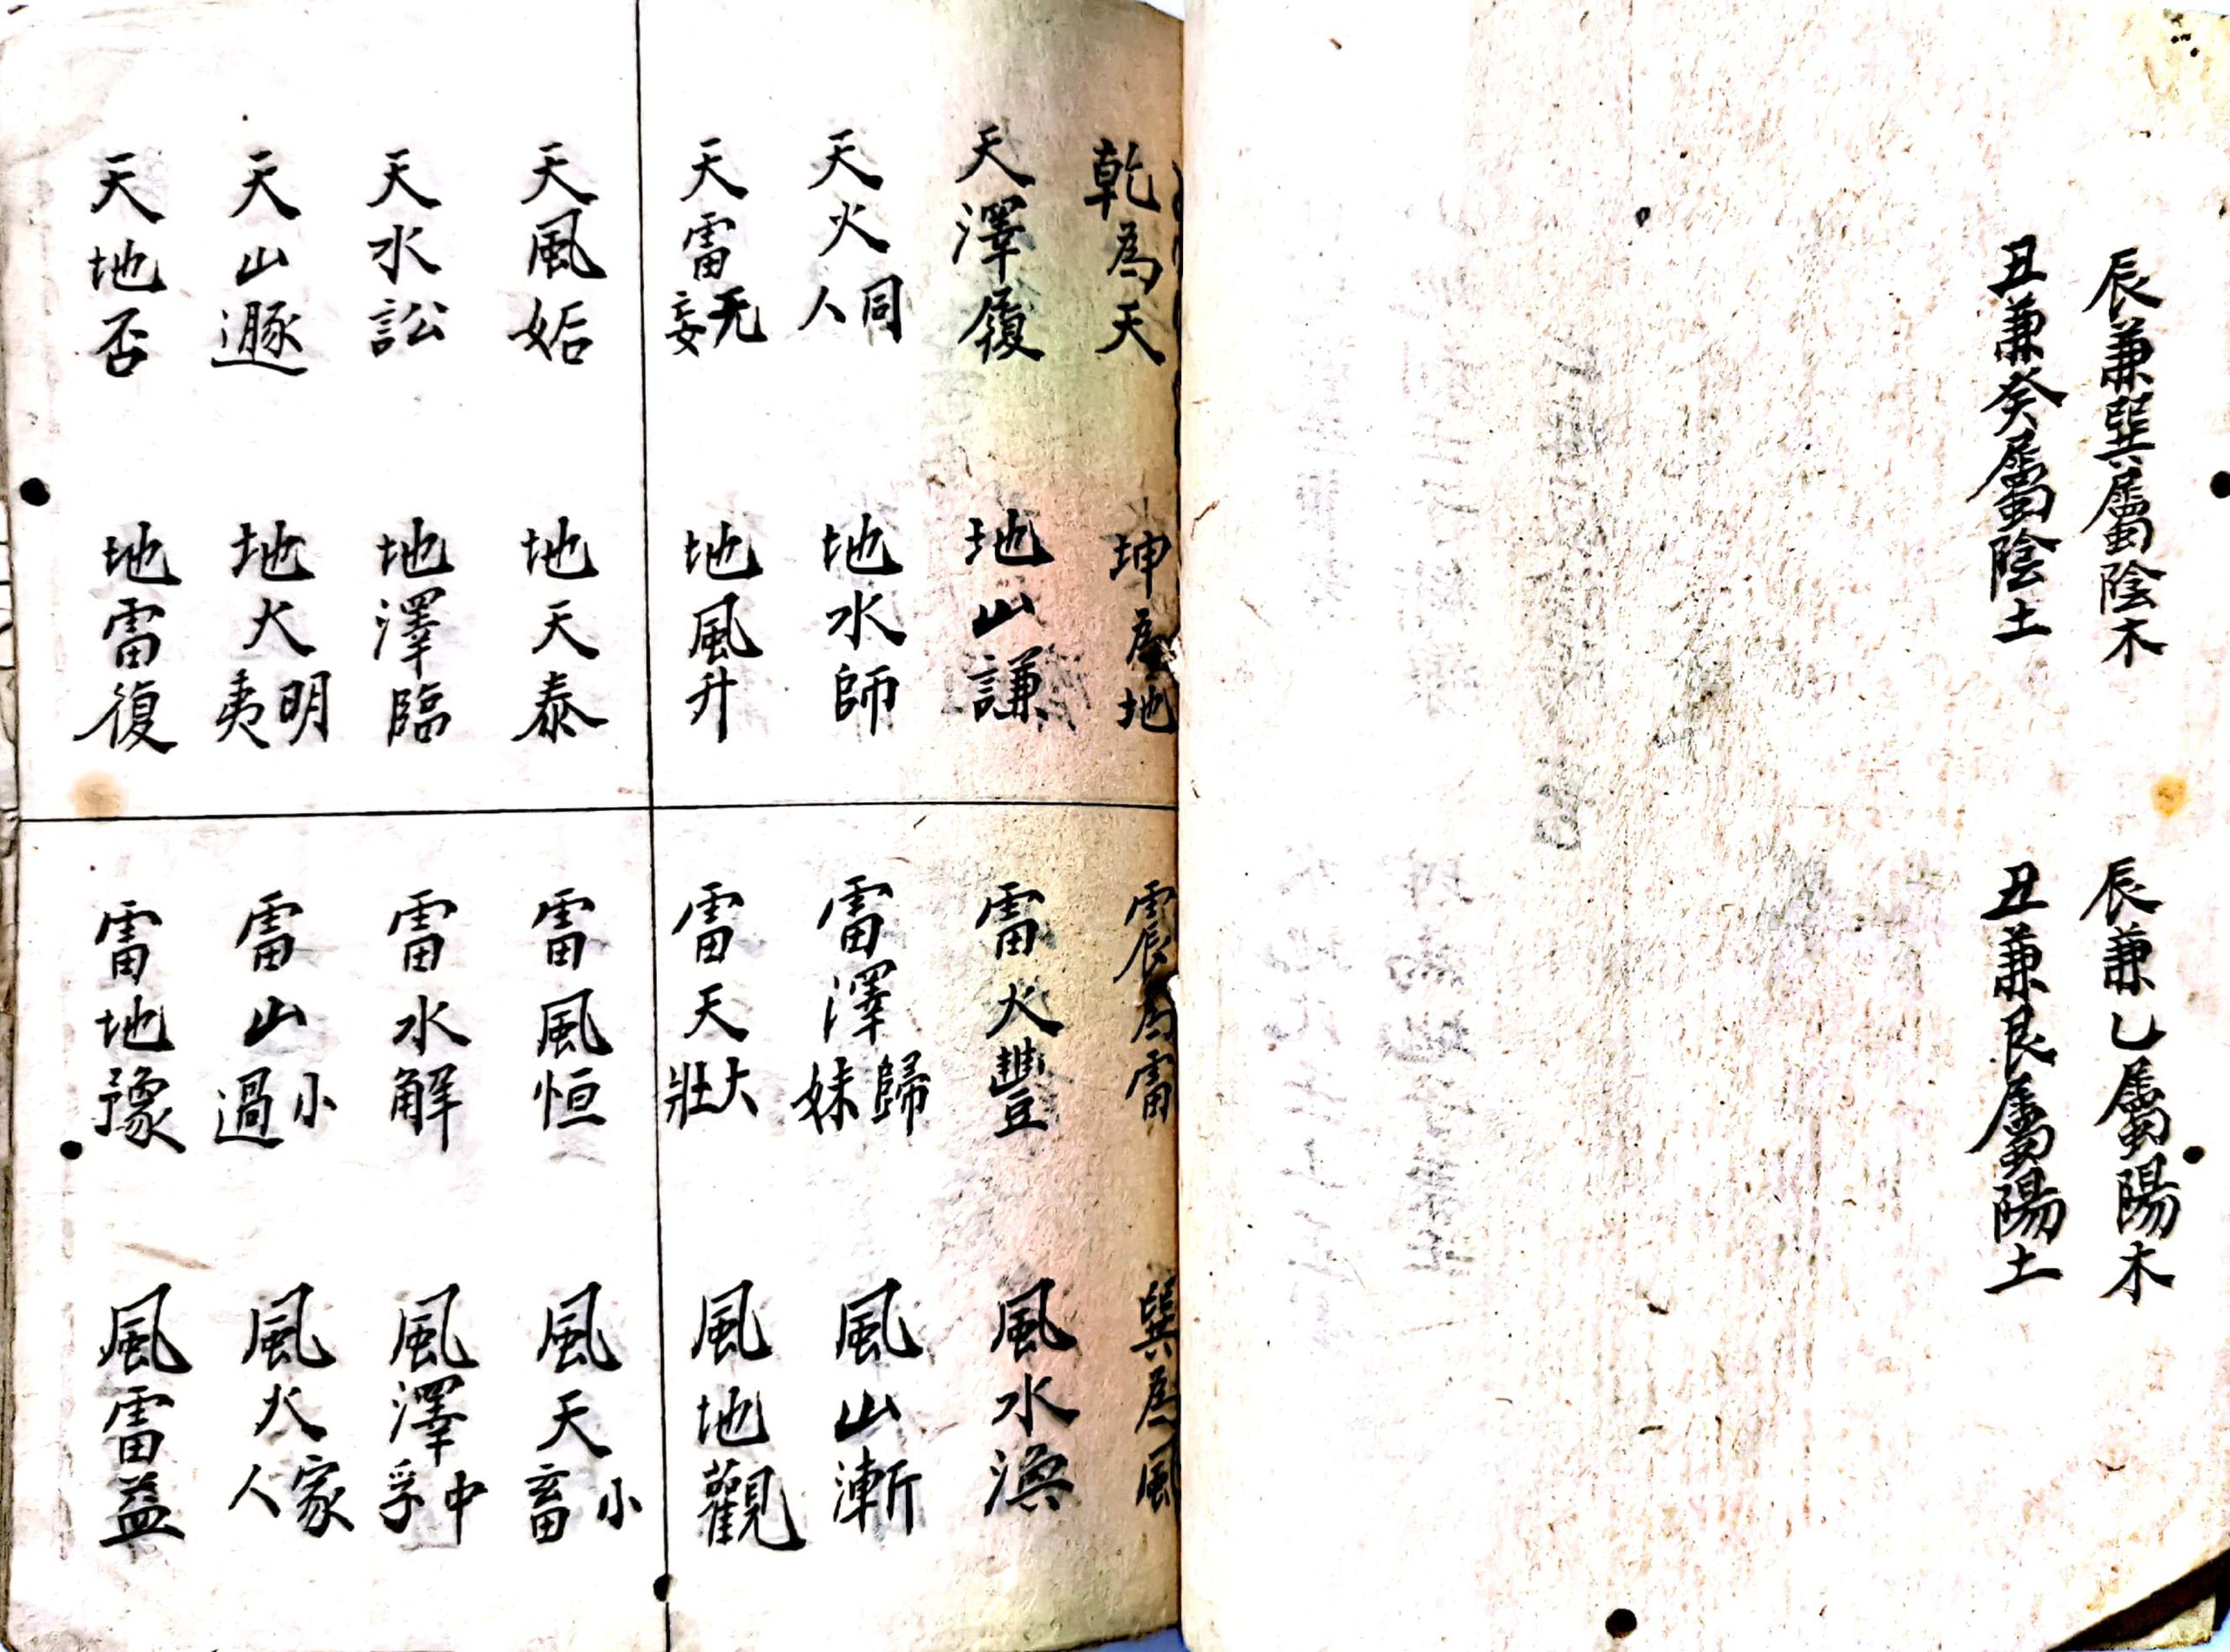 辰兼巽屬陰木
辰兼乙屬陽木
丑兼癸屬陰土
丑兼艮屬陽土
乾為天
坤為地
震為雷
巽為風
天澤履
地山謙
雷火豐
風水渙
天火同人
地水師
雷澤歸妹
風山漸
天雷无妄
地風升
雷天大壯
風地觀
天風姤
地天泰
雷風恒
風天小畜
天水訟
地澤臨
雷水解
風澤中孚
天山遯
地火明夷
雷山小過
風火家人
天地否
地雷復
雷地豫
風雷益